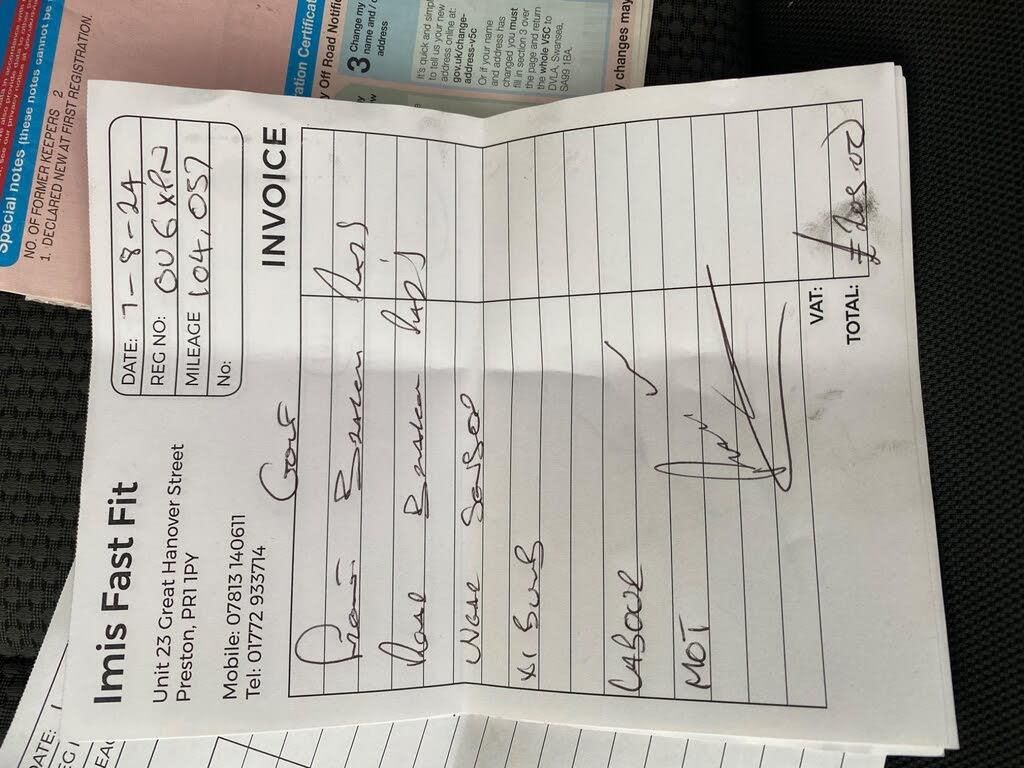 Imis Fast Fit
Unit 23 Great Hanover Street
Preston, PR1 1PY
Mobile: 07813 140611
Tel: 01772 933714
DATE: 7-8-24
REG NO: OU6XPN
MILEAGE 104,057
No:
INVOICE
GOLF
FRONT BRAKER PADS
REAR BRAKER PAD'S
WEAR SENSOR
X1 BULB
LABOUR ✓
MOT
VAT:
TOTAL: £205.00
Special notes (these notes cannot be
NO. OF FORMER KEEPERS 2
1. DECLARED NEW AT FIRST REGISTRATION.
ration Certificat
y Off Road Notific
3 Change my
name and / o
address
It's quick and simpl
to tell us your new
address online at:
gov.uk/change-
address-v5c
Or if your name
and address has
changed you must
fill in section 3 over
the page and return
the whole V5C to
DVLA, Swansea,
SA99 1BA.
y changes may
DATE: